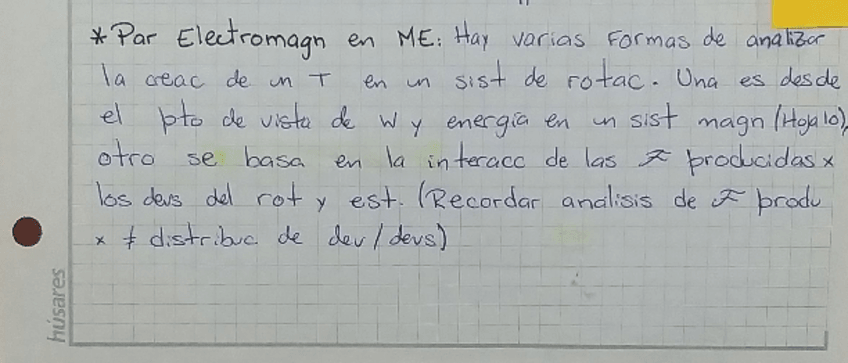 * Par Electromagn en ME: Hay varias formas de analizar
la creac de un T en un sist de rotac. Una es desde
el pto de vista de W y energía en un sist magn (Hoja 10),
otro se basa en la interacc de las ℱ producidas x
los devs del rot y est. (Recordar analisis de ℱ produ
x ≠ distribuc de dev/devs)
húsares